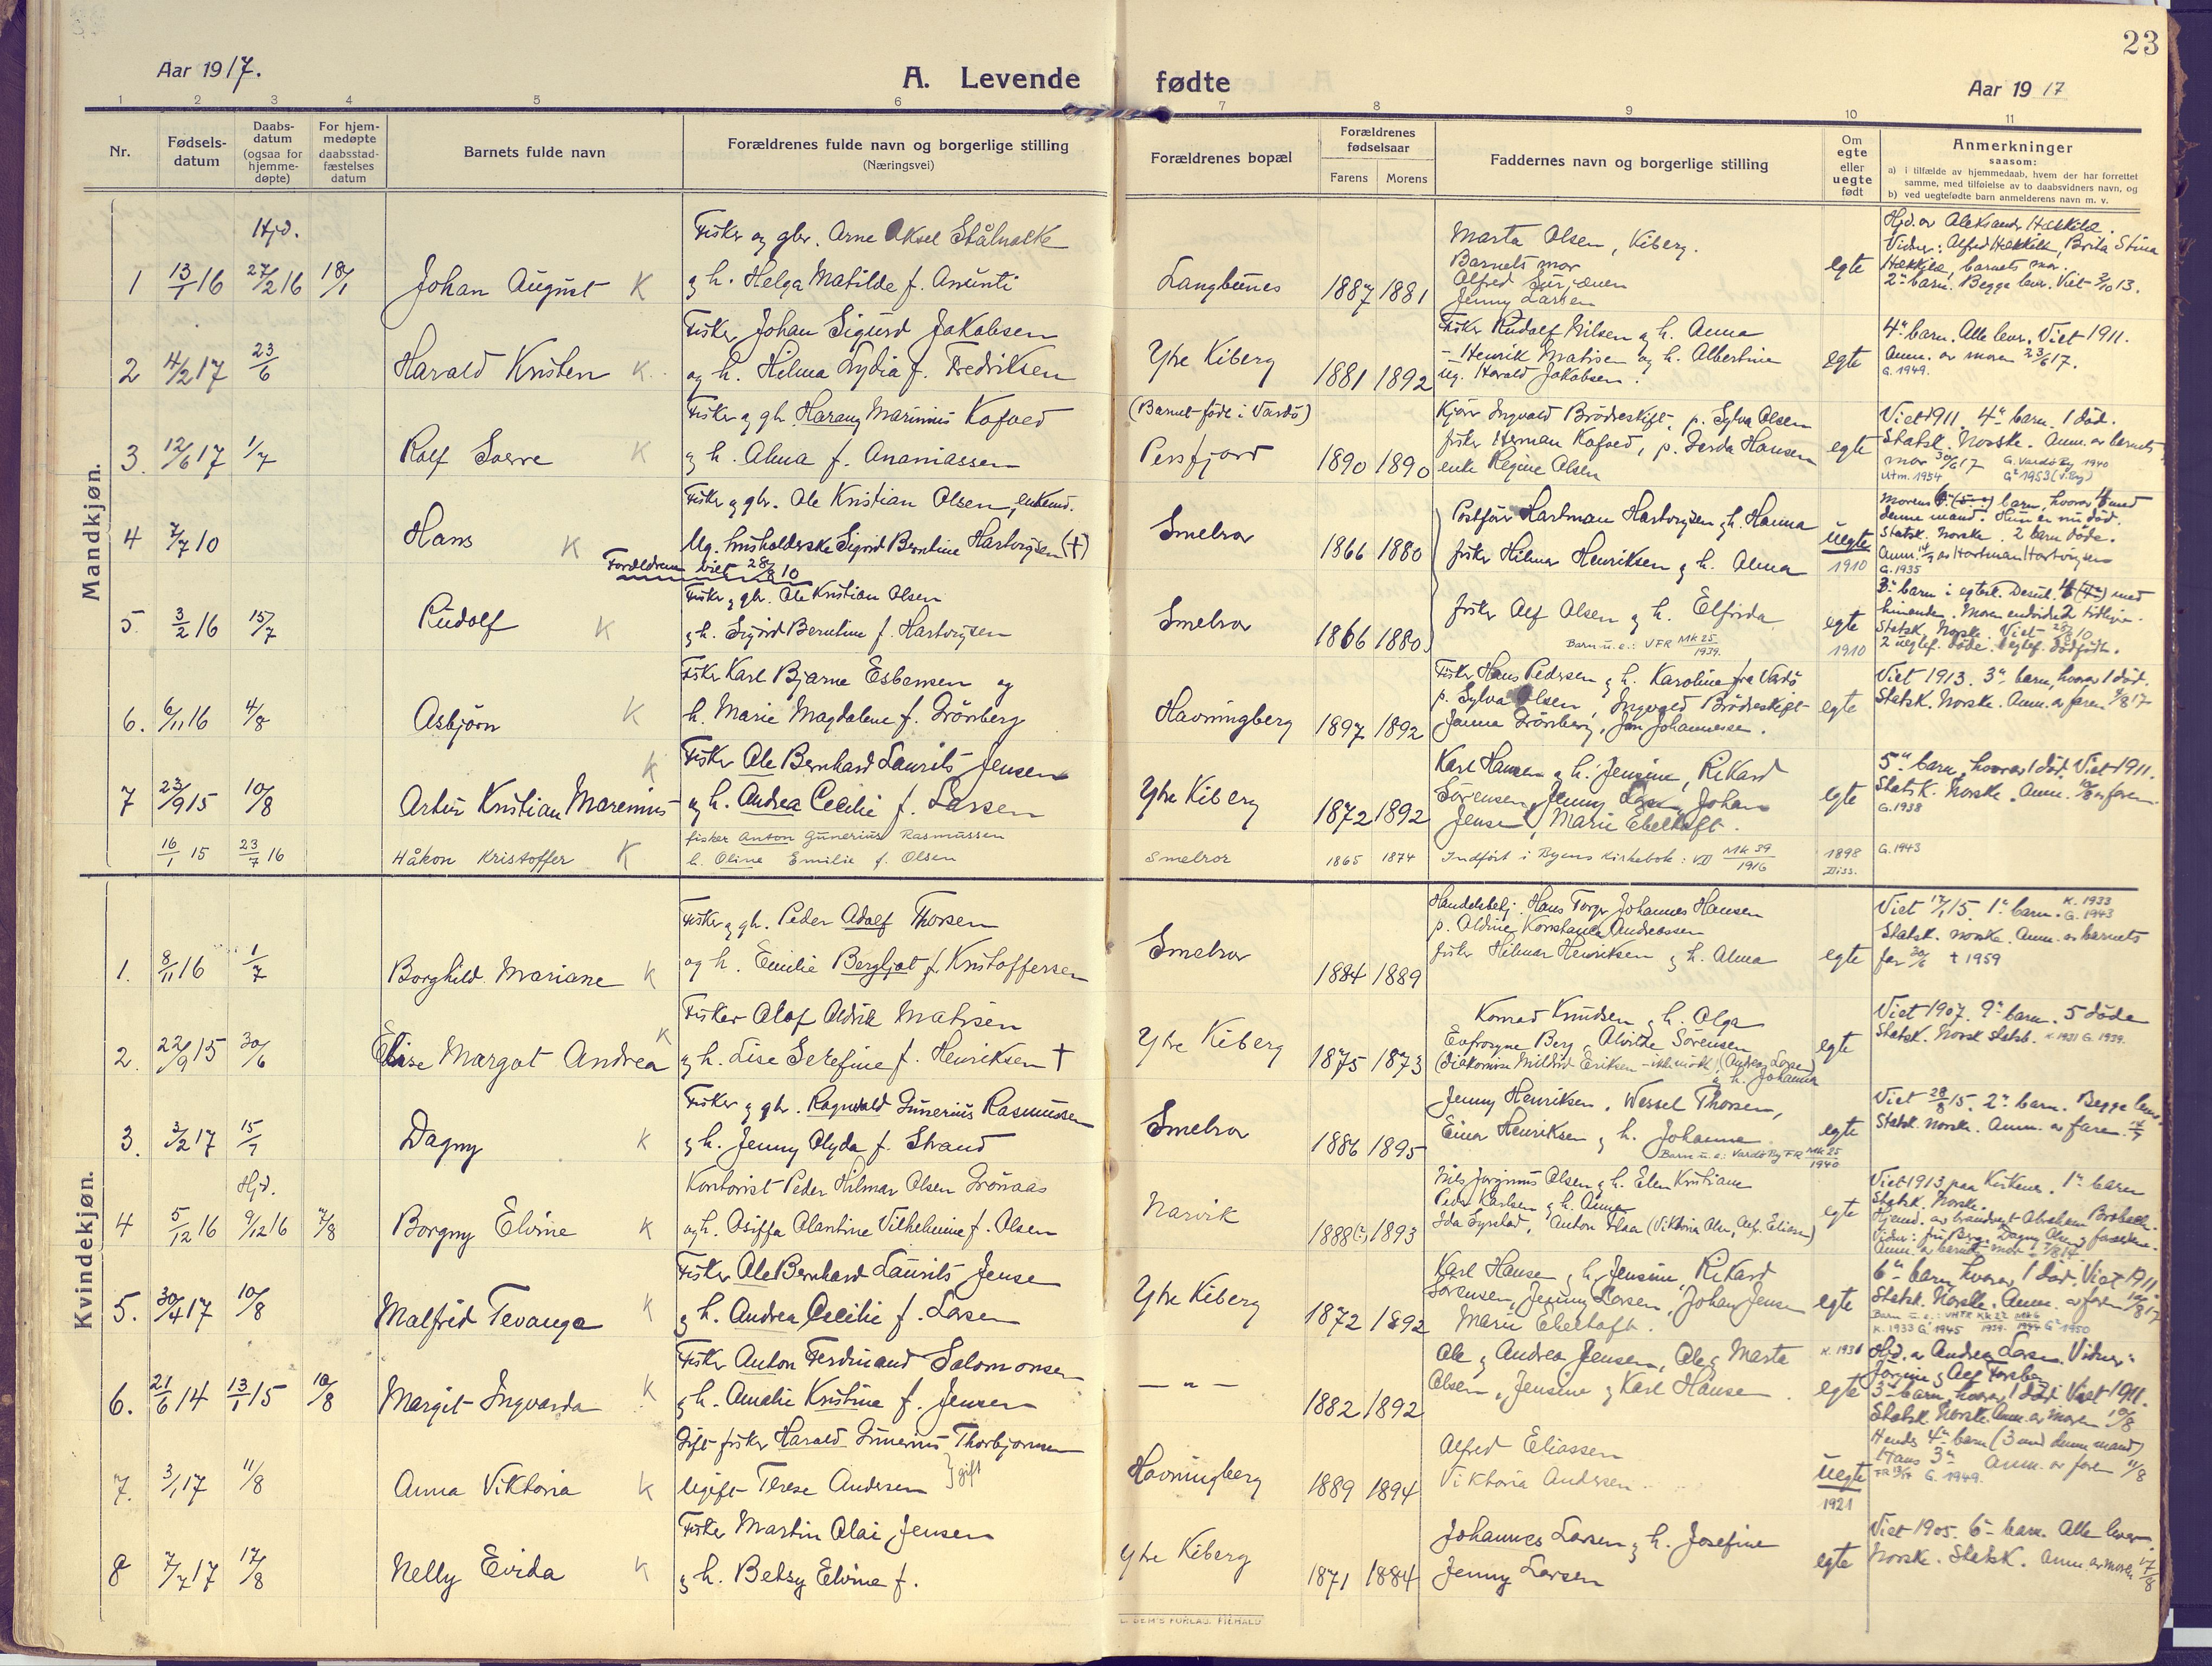 23
Aar 1917.
A. Levende fødte
Aar 1917
1 2 3 4 5 6 7 8 9 10 11
Nr.
Fødsels-
datum
Daabs-
datum
(ogsaa for
hjemme-
døpte)
For hjem-
medøpte
daabsstad-
fæstelses
datum
Barnets fulde navn
Forældrenes fulde navn og borgerlige stilling
(Næringsvei)
Forældrenes bopæl
Forældrenes
fødselsaar
Farens Morens
Faddernes navn og borgerlige stilling
Om
egte
eller
uegte
født
Anmerkninger
saasom:
a) i tilfælde av hjemmedaab, hvem der har forrettet
samme, med tilføielse av to daabsvidners navn, og
b) ved uegtefødte barn anmelderens navn m. v.
Mandkjøn.
Hjd.
1 13/1 16 27/2 16 18/1 Johan August K
Fisker og gbr. Arne Aksel Stålnacke
g h. Helga Matilde f. Anunti
Langbunes 1887 1881
Marta Olsen, Kiberg.
Barnets mor
Alfred
Jenny Larsen
egte
Hjd. av Aleksander Hækkilæ.
Vidner: Alfred Hækkilæ, Brita Stina
Hækkilæ, barnets mor.
2det barn. Begge lever. Viet 3/10 13.
2 4/2 17 23/6 Harald Kristen K
Fisker Johan Sigurd Jakobsen
og h. Hilma Lydia f. Fredriksen
Ytre Kiberg 1881 1892
Fisker Rudolf Nilsen g h. Anna
— Henrik Matisen og h. Albertine
ug. Harald Jakobsen.
egte
4de barn. Alle lever. Viet 1911.
Anm. av moren 23/6 17.
G. 1949.
3. 12/6 17 1/7 Rolf Sverre K
Fisker g gbr. Harang Marinius Kofoed
g h. Alma f. Ananiassen
(Barnet født i Vardø)
Persfjord 1890 1890
Kjører Ingvald Brødreskift, p. Sylva Olsen
fisker Herman Kofoed, p. Gerda Hansen
enke Regine Olsen
egte
Viet 1911. 4de barn. 1 død.
Statsk. Norske. Anm. av barnets
mor 30/6 17 G. Vardø By 1940
Utm. 1954 G2 1953 (V.By)
4 7/7 10 Hans K
Fisker g gbr. Ole Kristian Olsen, enkemd.
Ug. husholderske Sigrid Berntine Hartvigsen (†)
Forældrene viet 28/8 10
Smelror 1866 1880
Postfører Hartman Hartvigsen g h. Hanna
fisker Hilmar Henriksen g h. Alma
uegte
1910
barn, hvorav 4 med
denne mand. Hun er nu død.
Statsk. Norske. 2 barn døde.
Anm. av Hartman Hartvigsen
G. 1935
5. 3/2 16 15/7 Rudolf K
Fisker g gbr. Ole Kristian Olsen
g h. Sigrid Berntine f. Hartvigsen
Smelror 1866 1880
fisker Alf Olsen g h. Elfrida
Barn u.e.: VFR MK 25/1939.
egte
1910
3die barn i egtesk.
Statsk. Norske. Viet 28/8 10
2 uegtef. døde. 1 egtef. dødfødt.
6. 6/11 16 4/8 Asbjørn K
Fisker Karl Bjarne Esbensen og
h. Marie Magdalene f. Grønberg
Havningberg 1897 1892
Fisker Hans Pedersen g h. Karoline fra Vardø
p. Sylva Olsen, Ingvald Brødreskift
Janna Grønberg, Jon Johannessen.
egte
Viet 1913. 3die barn, hvorav 1 død.
Statsk. Norske. Anm. av faren 4/8 17
7 23/9 15 10/8 Artur Kristian Marenius K
Fisker Ole Bernhard Laurits Jensen
g h. Andrea Cecilie f. Larsen
Ytre Kiberg 1872 1892
Karl Hansen g h. Jensine, Rikard
Sørensen, Jenny Larsen, Johan
Jensen, Marie Ebeltoft.
egte
5te barn, hvorav 1 død. Viet 1911.
Statsk. Norske. Anm. 10/8 av faren
G. 1938
16/1 15 23/7 16 Håkon Kristoffer K
fisker Anton Gunerius Rasmussen
h. Oline Emilie f. Olsen
Smelror 1865 1874 Indført i Byens Kirkebok: VII MK 39/1916
1898
Diss.
G. 1943
Kvindekjøn.
1. 8/11 16 1/7 Borghild Mariane K
Fisker g gb. Peder Adolf Thorsen
og h. Emilie Bergljot f. Kristoffersen
Smelror 1884 1889
Handelsbetj. Hans Torgr Johannes Hansen
p. Aldine Konstance Andreassen
fisker Hilmar Henriksen g h. Alma
egte
Viet 17/1 15. 1ste barn. K. 1933 G. 1943
Statsk. norske. Anm. av barnets
far 30/6 † 1959
2. 22/9 15 30/6 Elise Margot Andrea K
Fisker Olaf Aldrik Matisen
g h. Lise Serefine f. Henriksen †
Ytre Kiberg 1875 1873
Konrad Knudsen g h. Olga
Eufrosyne Berg, Alvilde Sørensen
(Diakonisse Mildrid Eriksen – ikke møtt) (Andreas Larsen
g h. Johanna
egte
Viet 1907. 9de barn. 5 døde
Statsk. Norsk Statsb. K. 1931 G. 1939.
3. 3/2 17 15/7 Dagny K
Fisker g gbr. Ragnvald Gunerius Rasmussen
g h. Jenny Alyda f. Strand
Smelror 1886 1895
Jenny Henriksen, Wessel Thorsen,
Einar Henriksen g h. Johanna
Barn u.e.: Vardø By FR MK 25/1940
egte
Viet 28/8 15. 2det barn. Begge lever.
Statsk. Norske. Anm. av faren
Hjd.
4 5/12 16 9/12 16 7/8 Borgny Elvine K
Kontorist Peder Hilmar Olsen Grønaas
og h. Asiffa Alantine Vilhelmine f. Olsen
Narvik 1888(?) 1893
Nils Jørginus Olsen g h. Elen Kristiane
Peder Karlsen g h. Anna
Ida Syrstad, Anton Flaa
egte
Viet 1913 paa Kirkenes. 1ste barn
Statsk. Norske.
Anm. av barnets mor 7/8 17
5. 30/4 17 10/8 Malfrid Tevange K
Fisker Ole Bernhard Laurits Jensen
g h. Andrea Cecilie f. Larsen
Ytre Kiberg 1872 1892
Karl Hansen g h. Jensine, Rikard
Sørensen, Jenny Larsen, Johan Jensen
Marie Ebeltoft.
egte
6te barn, hvorav 1 død. Viet 1911.
Statsk. Norske. Anm. av faren 10/8 17
K. 1933 G1 1945 G2 1950
6. 21/6 14 13/1 15 10/8 Margit Ingvarda K
Fisker Anton Ferdinand Salomonsen
g h. Amalie Kristine f. Jensen
— „ — 1882 1892
Ole g Andrea Jensen, Ole g Marta
Olsen, Jensine g Karl Hansen.
K. 1931
egte
Hjd. av Andrea Larsen. Vidner:
Jørgine g Alf Forsberg
3die barn, hvorav 1 død. Viet 1911.
Statsk. Norske. Anm. av moren 10/8
7. 3/1 17 11/8 Anna Viktoria K
Gift fisker Harald Gunerius Thorbjørnsen
Ugift Terese Andersen } gift
Havningberg 1889 1894
Alfred Eliassen
Viktoria Andersen
uegte
1921
Hendes 4de barn (3 med denne mand)
Hans 3die Anm. av faren 11/8
G. 1949.
8 7/7 17 17/8 Nelly Evida K
Fisker Martin Olai Jensen
g h. Betsy Elvine f.
Ytre Kiberg 1871 1884
Johannes Larsen g h. Josefine
Jenny Larsen
egte
Viet 1905. 6te barn. Alle lever
Norske. Statsk. Anm. av moren 17/8